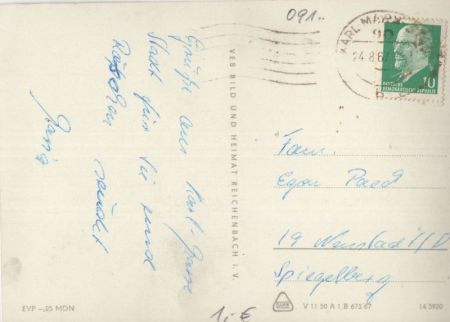 091..
KARL-MARX
24.8.67
10
DEUTSCHE
DEMOKRATISCHE REPUBLIK
Grüße aus Karl-Marx
Stadt für Sie und
sendet
VEB BILD UND HEIMAT REICHENBACH i. V.
Fam.
Egon
19 Neustadt/D
Spiegelberg
EVP –,25 MDN
1,- €
V 11 50 A 1 B 673 67
14 5920